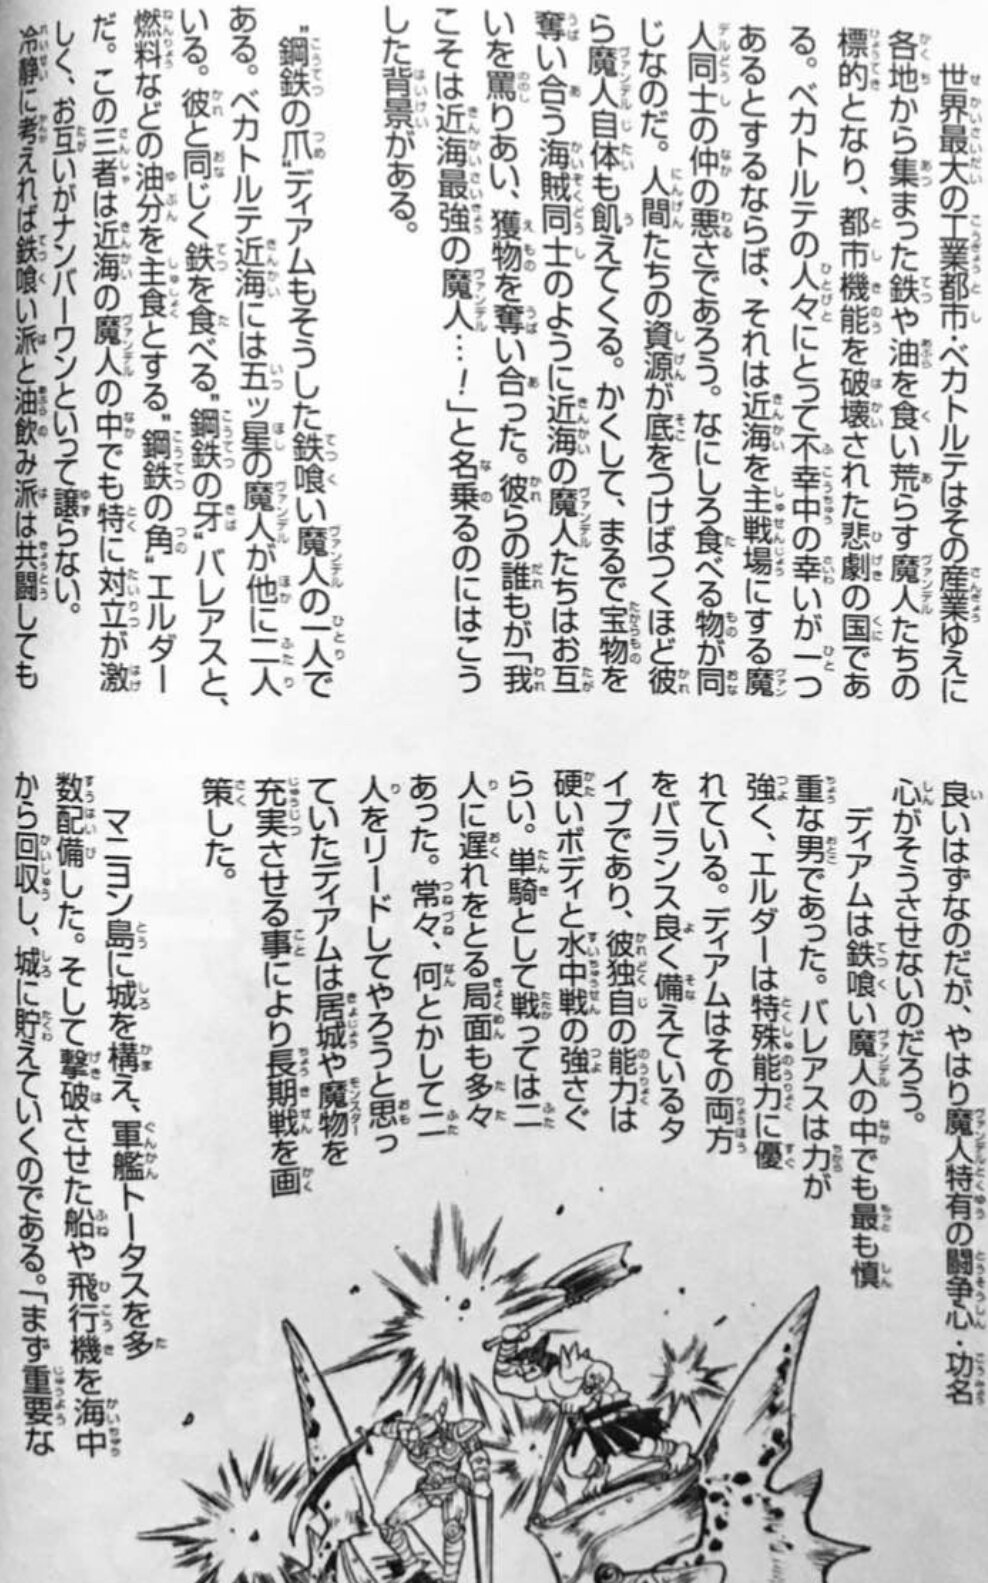 世界最大の工業都市・ベカトルテはその産業ゆえに
各地から集まった鉄や油を食い荒らす魔人たちの
標的となり、都市機能を破壊された悲劇の国であ
る。ベカトルテの人々にとって不幸中の幸いが一つ
あるとするならば、それは近海を主戦場にする魔
人同士の仲の悪さであろう。なにしろ食べる物が同
じなのだ。人間たちの資源が底をつけばつくほど彼
ら魔人自体も飢えてくる。かくして、まるで宝物を
奪い合う海賊同士のように近海の魔人たちはお互
いを罵りあい、獲物を奪い合った。彼らの誰もが「我
こそは近海最強の魔人…！」と名乗るのにはこう
した背景がある。
“鋼鉄の爪”ディアムもそうした鉄喰い魔人の一人で
ある。ベカトルテ近海には五ッ星の魔人が他に二人
いる。彼と同じく鉄を食べる“鋼鉄の牙”バレアスと、
燃料などの油分を主食とする“鋼鉄の角”エルダー
だ。この三者は近海の魔人の中でも特に対立が激
しく、お互いがナンバーワンといって譲らない。
冷静に考えれば鉄喰い派と油飲み派は共闘しても
良いはずなのだが、やはり魔人特有の闘争心・功名
心がそうさせないのだろう。
ディアムは鉄喰い魔人の中でも最も慎
重な男であった。バレアスは力が
強く、エルダーは特殊能力に優
れている。ディアムはその両方
をバランス良く備えているタ
イプであり、彼独自の能力は
硬いボディと水中戦の強さぐ
らい。単騎として戦っては二
人に遅れをとる局面も多々
あった。常々、何とかして二
人をリードしてやろうと思っ
ていたディアムは居城や魔物を
充実させる事により長期戦を画
策した。
マニヨン島に城を構え、軍艦トータスを多
数配備した。そして撃破させた船や飛行機を海中
から回収し、城に貯えていくのである。「まず重要な